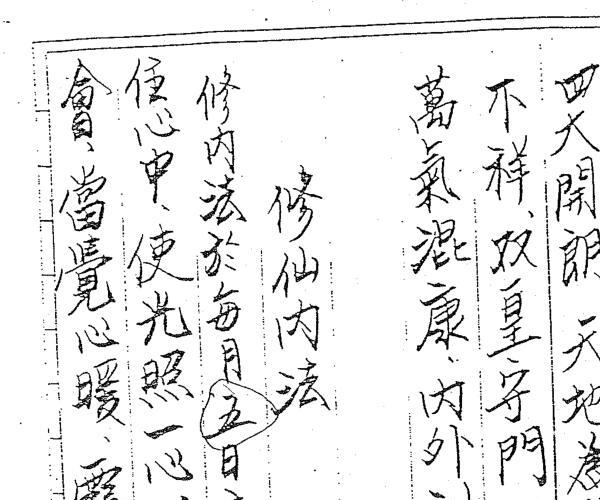 四大開朗、天地為
不祥、双皇守門
萬氣混康、內外
修仙內法
修內法於每月五日
住心中、使光照一心
會、當覺心暖、